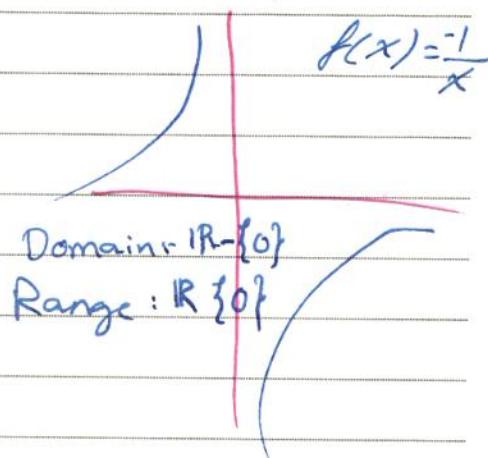 f(x) = -1/x
Domain: ℝ-{0}
Range: ℝ {0}